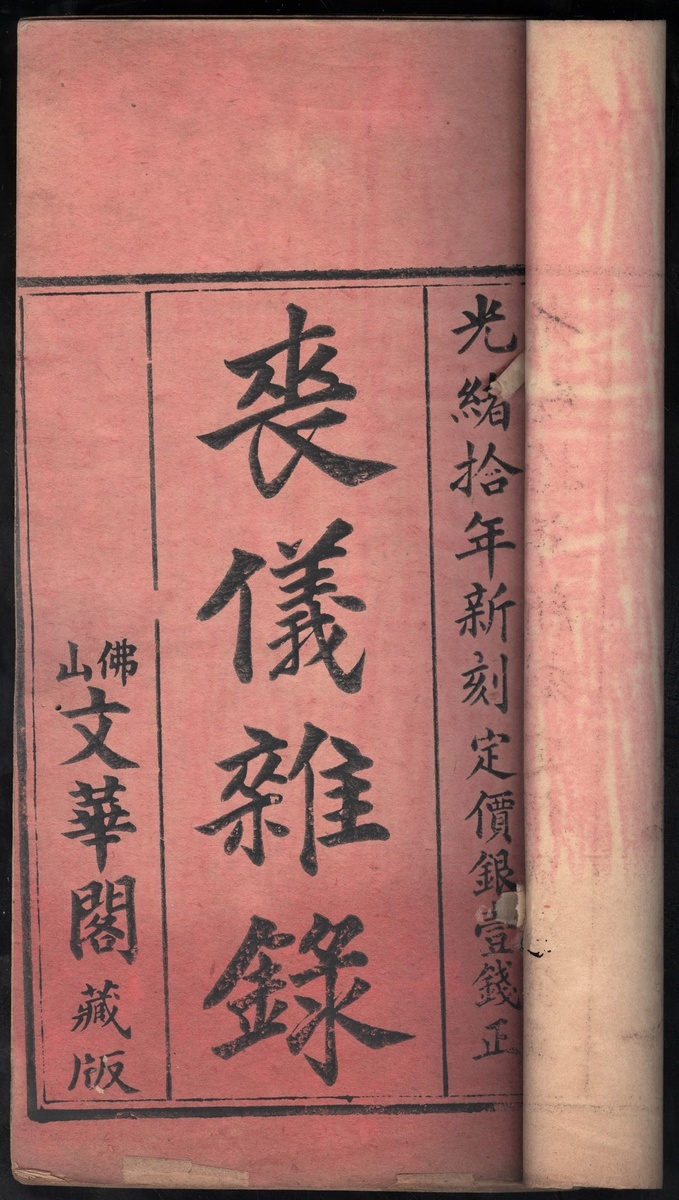 光緒拾年新刻定價銀壹錢正
喪儀雜錄
佛山文華閣藏版